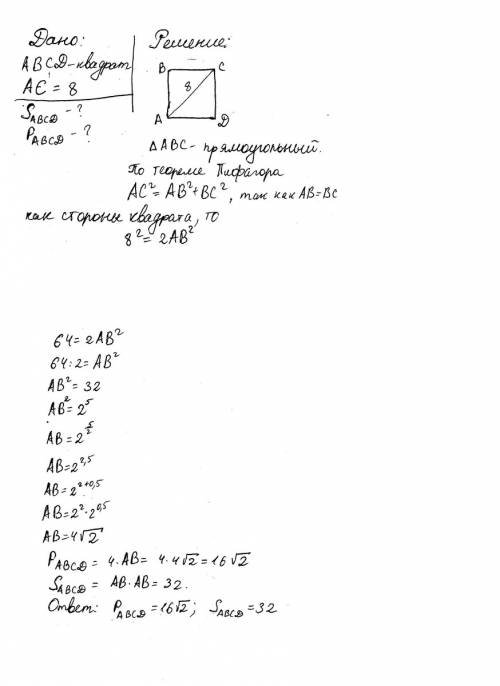 Дано:
ABCD-квадрат
AC = 8
S_ABCD - ?
P_ABCD - ?
Решение:
B C
8
A D
△ABC - прямоугольный.
По теореме Пифагора
AC² = AB² + BC², так как AB = BC
как стороны квадрата, то
8² = 2AB²
64 = 2AB²
64:2 = AB²
AB² = 32
AB² = 2⁵
AB = 2^(5/2)
AB = 2^2,5
AB = 2^2+0,5
AB = 2² · 2^0,5
AB = 4√2
P_ABCD = 4·AB = 4·4√2 = 16√2
S_ABCD = AB·AB = 32.
Ответ: P_ABCD = 16√2; S_ABCD = 32